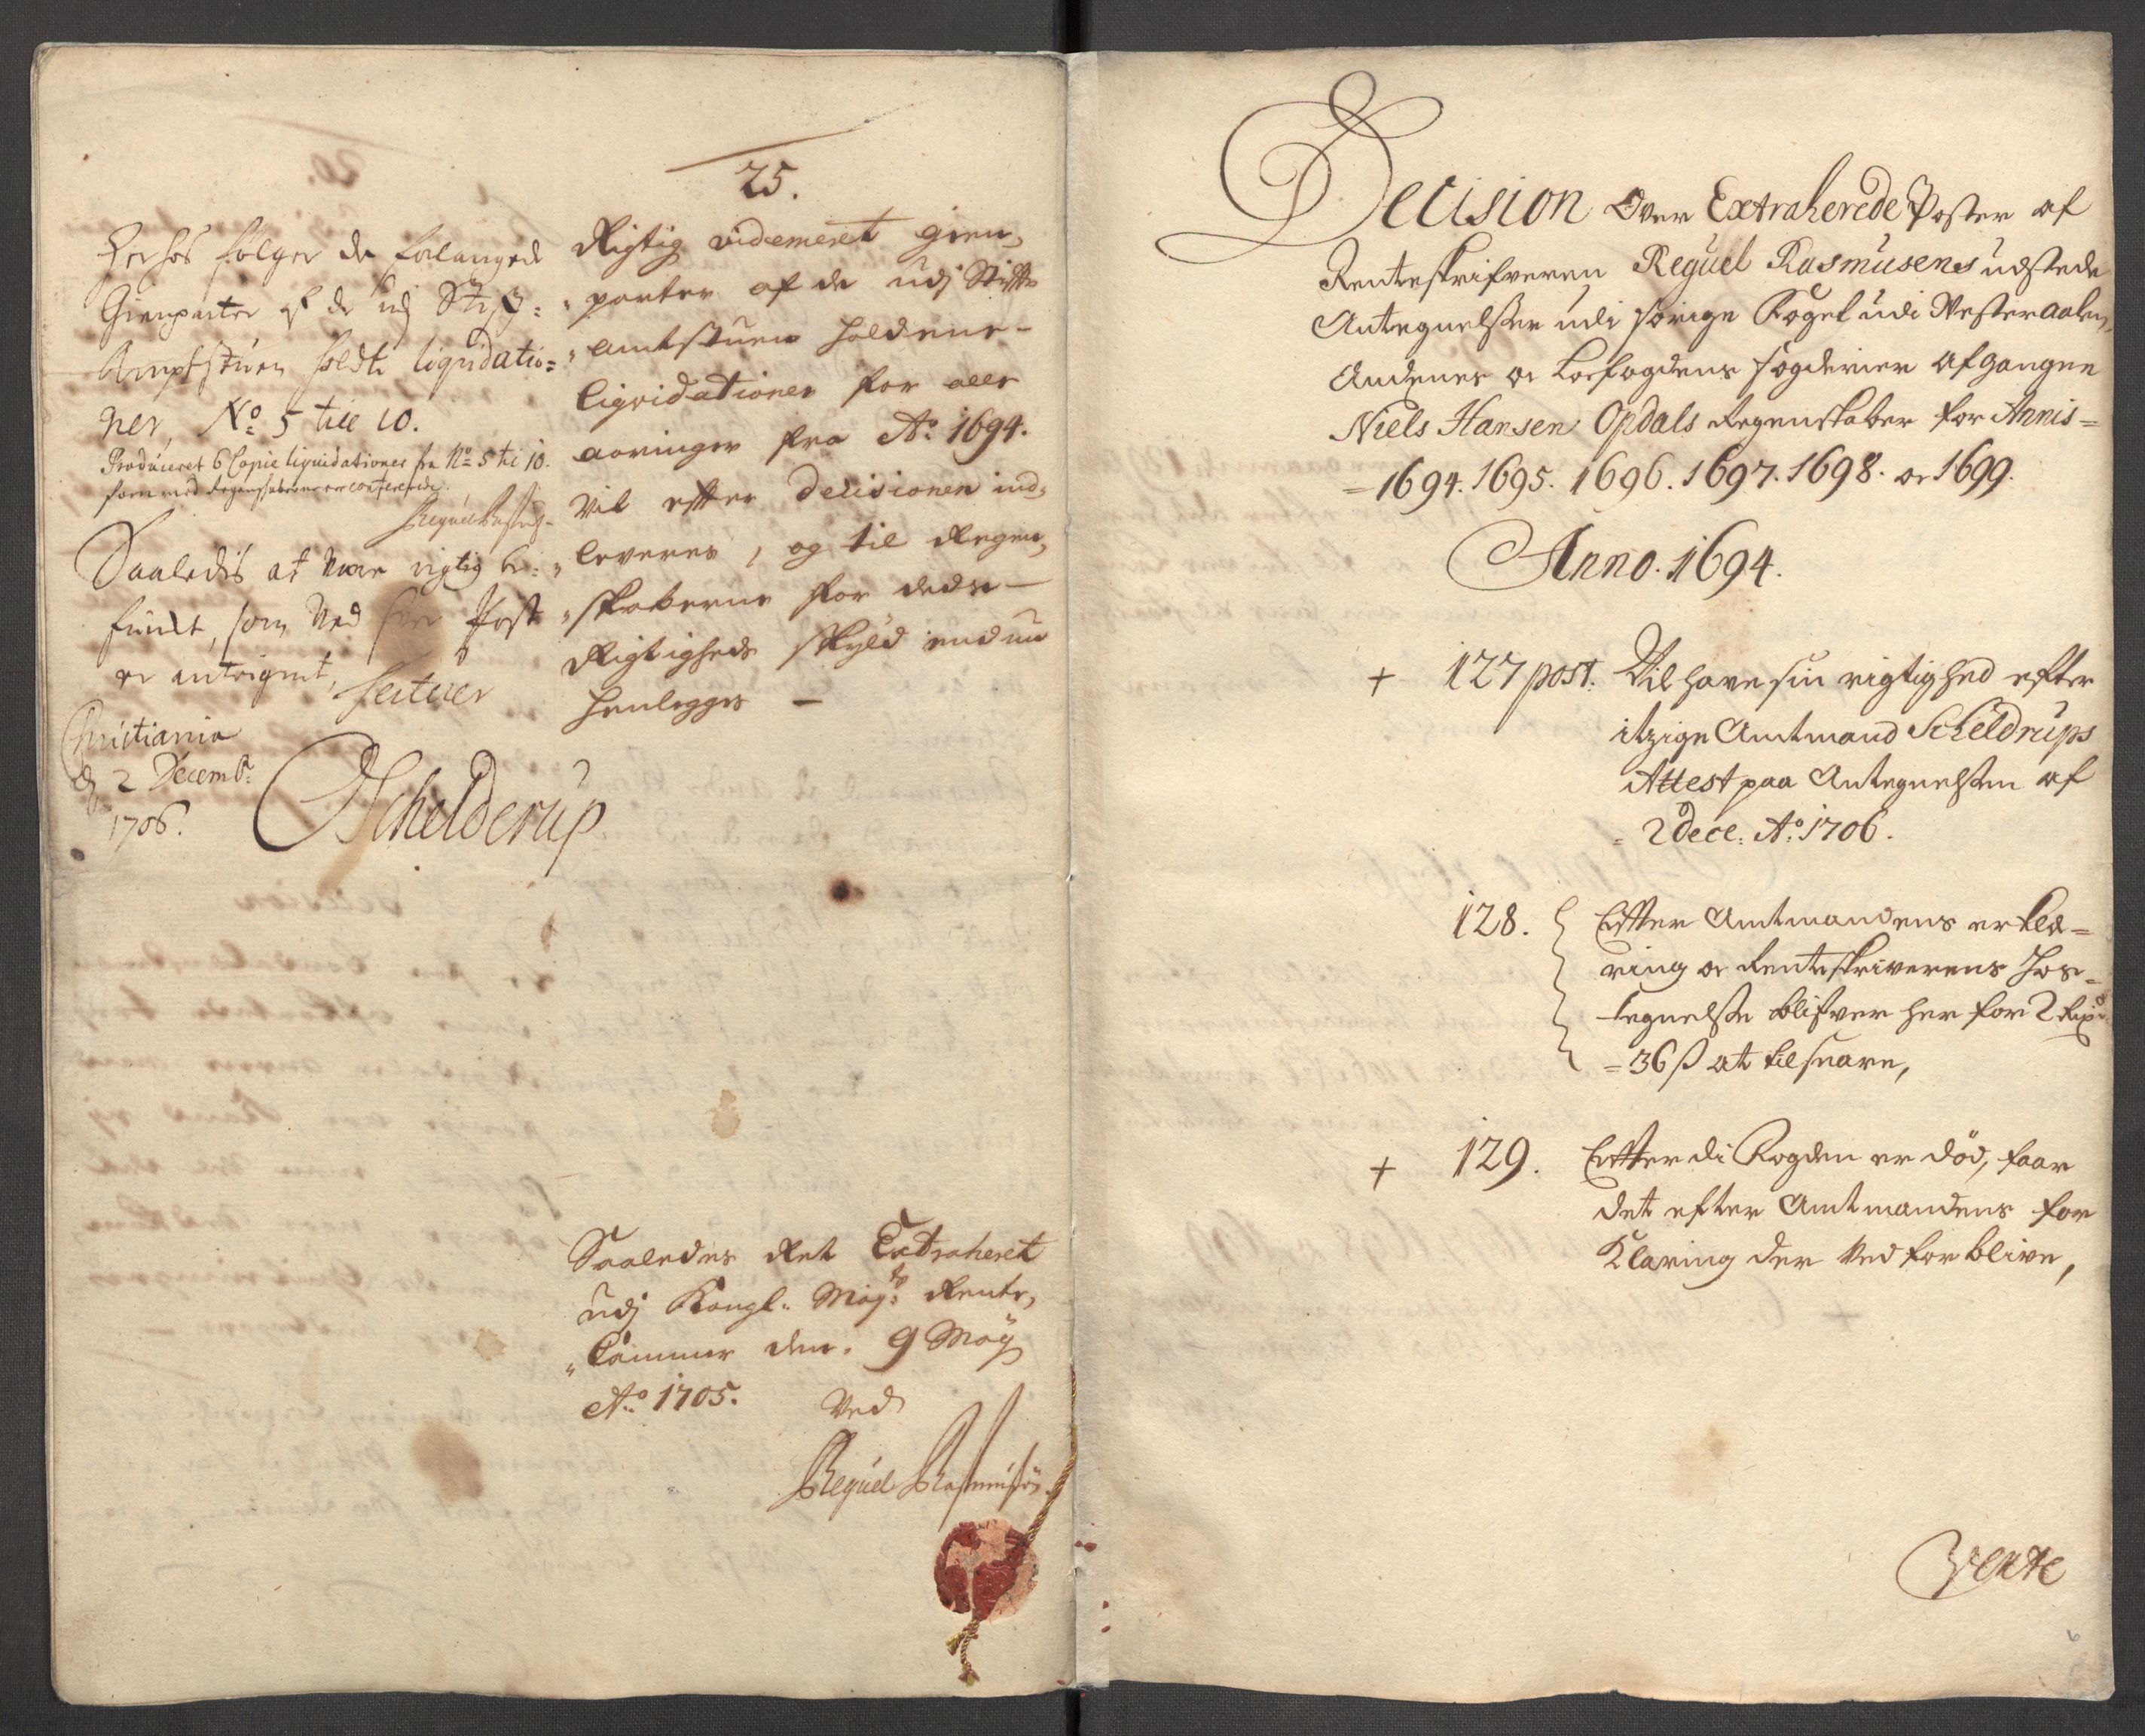 25.
Her hos følger de forlangede
Gienparter af de udj Stift-
Ampt stuen holdte liqvidatio=
ner, No 5 till 10.
Produceret 6 Copie liqvidationer fra No 5 til 10.
som med Regenskaberne er confererede.
Saaledis at være rigtig be-
fundt, som ved hver Post
er antegnet,
Christiania
d 2 Decembr:
1706.
Schelderup
Rigtig videmeret gien-
parter af de udj Stifts
amtstuen holdene
liqvidationer for alle
aaringer fra Ao: 1694.
vil efter Decisionen ind-
leveres, og til Regen-
skaberne for deris
Rigtigheds skyld endnu
henlegges —
Saaledes Ret Extraheret
udj Kongl: Mayts: Rente-
Cammer den. 9 Maij
Ao: 1705. Ved
Reqúel Rasmusøn
Decision Over Extraherede Poster af
Renteskrifveren Reqúel Rasmúsens udstede
Antegnelser udi forige Foget udi Vesteraalen,
Andenes oc Lofodens fogderier Afgangne
Niels Hansen Opdals Regenskaber for Annis=
=1694. 1695. 1696. 1697. 1698. oc 1699.
Anno. 1694.
+ 127 post. Vil have sin rigtighed efter
itzige Amtmand Scheldrups
Attest paa Antegnelsen af
= 2 dece: Ao: 1706.
128. Efter Amtmandens erklæ=
ring oc Renteskriverens hos=
tegnelse blifver her for 2 Rixd
=36 ß at tilsvare,
+ 129. Efterdi Fogden er död, faar
det efter Amtmandens for
Klaring der ved forblive,
Verte